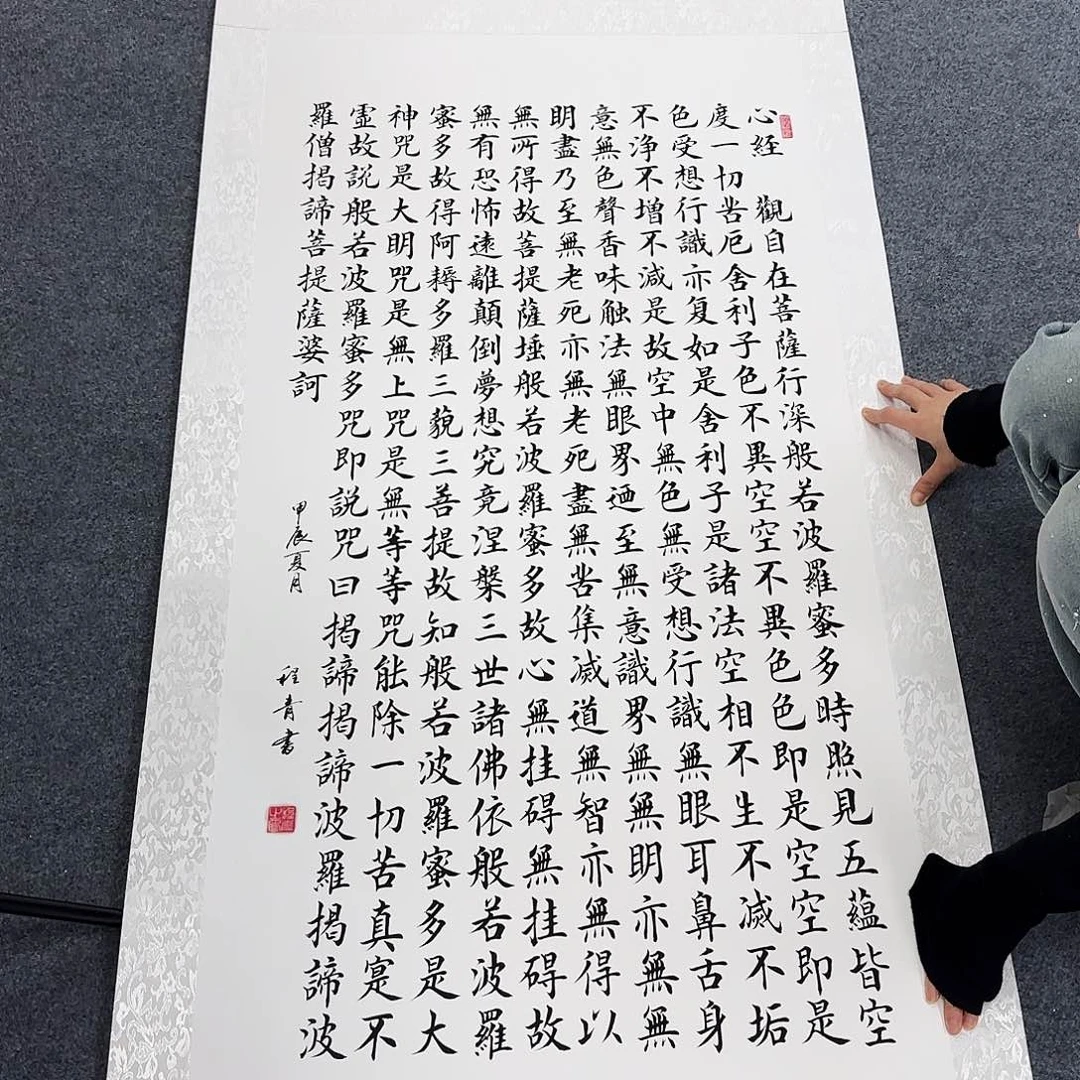 心経 觀自在菩薩行深般若波羅蜜多時照見五蘊皆空
度一切苦厄舍利子色不異空空不異色色即是空空即是
色受想行識亦复如是舍利子是諸法空相不生不滅不垢
不净不增不减是故空中無色無受想行識無眼耳鼻舌身
意無色聲香味触法無眼界迺至無意識界無無明亦無無
明盡乃至無老死亦無老死盡無苦集滅道無智亦無得以
無所得故菩提薩埵般若波羅蜜多故心無挂碍無挂碍故
無有恐怖遠離顛倒夢想究竟涅槃三世諸佛依般若波羅
蜜多故得阿耨多羅三藐三菩提故知般若波羅蜜多是大
神咒是大明咒是無上咒是無等等咒能除一切苦真寔不
虛故説般若波羅蜜多咒即説咒曰揭諦揭諦波羅揭諦波
羅僧揭諦菩提薩婆訶
甲辰夏月
程青書